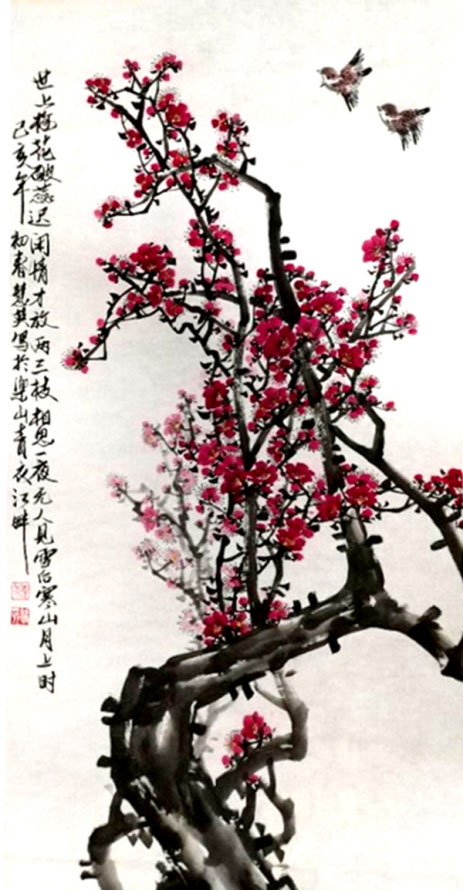 世上梅花破蕊迟闲情才放两三枝相思一夜无人见雪后寒山月上时
己亥年初春慧英写於乐山青衣江畔